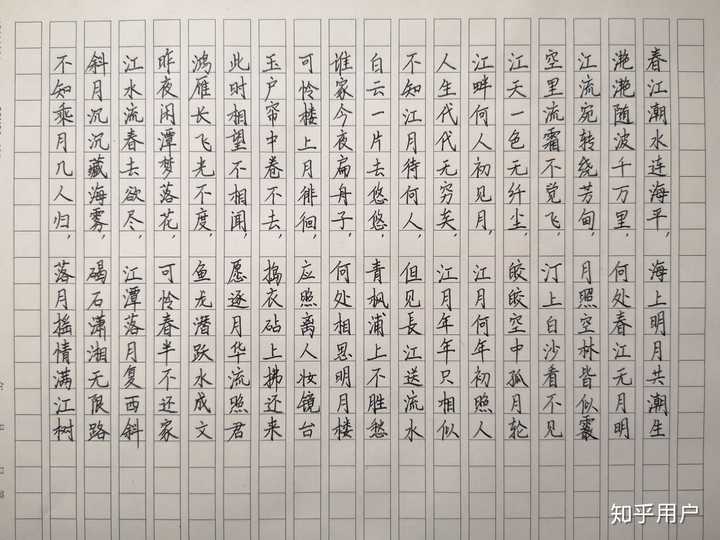 春江潮水连海平，海上明月共潮生
滟滟随波千万里，何处春江无月明
江流宛转绕芳甸，月照空林皆似霰
空里流霜不觉飞，汀上白沙看不见
江天一色无纤尘，皎皎空中孤月轮
江畔何人初见月，江月何年初照人
人生代代无穷矣，江月年年只相似
不知江月待何人，但见長江送流水
白云一片去悠悠，青枫浦上不胜愁
谁家今夜扁舟子，何处相思明月楼
可怜楼上月徘徊，应照离人妆镜台
玉户帘中卷不去，捣衣砧上拂还来
此时相望不相闻，愿逐月华流照君
鸿雁长飞光不度，鱼龙潜跃水成文
昨夜闲潭梦落花，可怜春半不还家
江水流春去欲尽，江潭落月复西斜
斜月沉沉藏海雾，碣石潇湘无限路
不知乘月几人归，落月摇情满江树
知乎用户